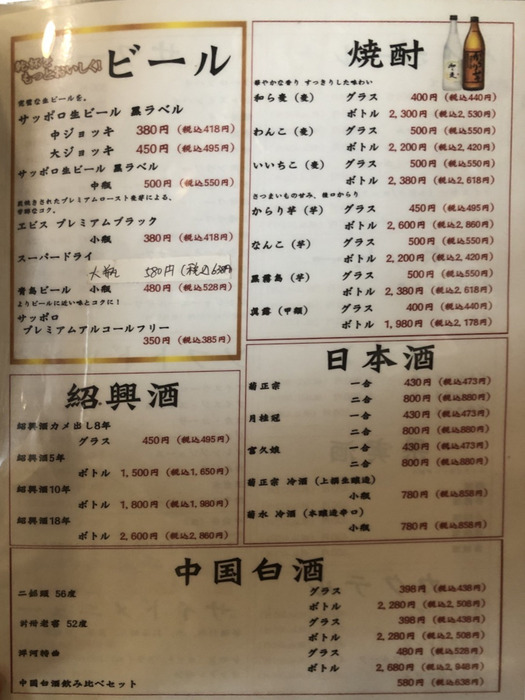 もっとおいしく!
ビール
サッポロ生ビール 黒ラベル
中ジョッキ 380円 (税込418円)
大ジョッキ 450円 (税込495円)
サッポロ生ビール 黒ラベル
中瓶 500円 (税込550円)
エビス プレミアムブラック
小瓶 380円 (税込418円)
スーパードライ
大瓶 580円 (税込638円)
青島ビール 小瓶 480円 (税込528円)
よりビールに近い味とコクに!
サッポロ
プレミアムアルコールフリー
350円 (税込385円)
紹興酒
紹興酒カメ出し8年
グラス 450円 (税込495円)
紹興酒5年
ボトル 1,500円 (税込1,650円)
紹興酒10年
ボトル 1,800円 (税込1,980円)
紹興酒18年
ボトル 2,600円 (税込2,860円)
焼酎
華やかな香り すっきりした味わい
和ら麦 (麦) グラス 400円 (税込440円)
ボトル 2,300円 (税込2,530円)
わんこ (麦) グラス 500円 (税込550円)
ボトル 2,200円 (税込2,420円)
いいちこ (麦) グラス 500円 (税込550円)
ボトル 2,380円 (税込2,618円)
さつまいもの甘み、後口からり
からり芋 (芋) グラス 450円 (税込495円)
ボトル 2,600円 (税込2,860円)
なんこ (芋) グラス 500円 (税込550円)
ボトル 2,200円 (税込2,420円)
黒霧島 (芋) グラス 500円 (税込550円)
ボトル 2,380円 (税込2,618円)
(甲類) グラス 400円 (税込440円)
ボトル 1,980円 (税込2,178円)
日本酒
菊正宗 一合 430円 (税込473円)
二合 800円 (税込880円)
月桂冠 一合 430円 (税込473円)
二合 800円 (税込880円)
富久娘 一合 430円 (税込473円)
二合 800円 (税込880円)
菊正宗 冷酒 (上撰生醸造)
小瓶 780円 (税込858円)
菊水 冷酒 (本醸造辛口)
小瓶 780円 (税込858円)
中国白酒
二鍋頭 56度 グラス 398円 (税込438円)
ボトル 2,280円 (税込2,508円)
52度 グラス 398円 (税込438円)
ボトル 2,280円 (税込2,508円)
洋河特曲 グラス 480円 (税込528円)
ボトル 2,680円 (税込2,948円)
中国白酒飲み比べセット 580円 (税込638円)